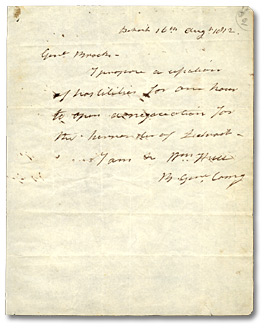 Detroit 16th Augt 1812
Genl Brock -
I propose a cessation
of hostilities for one hour
to open negociation for
the surrender of Detroit -
I am &c Wm Hull
B Genl Comg